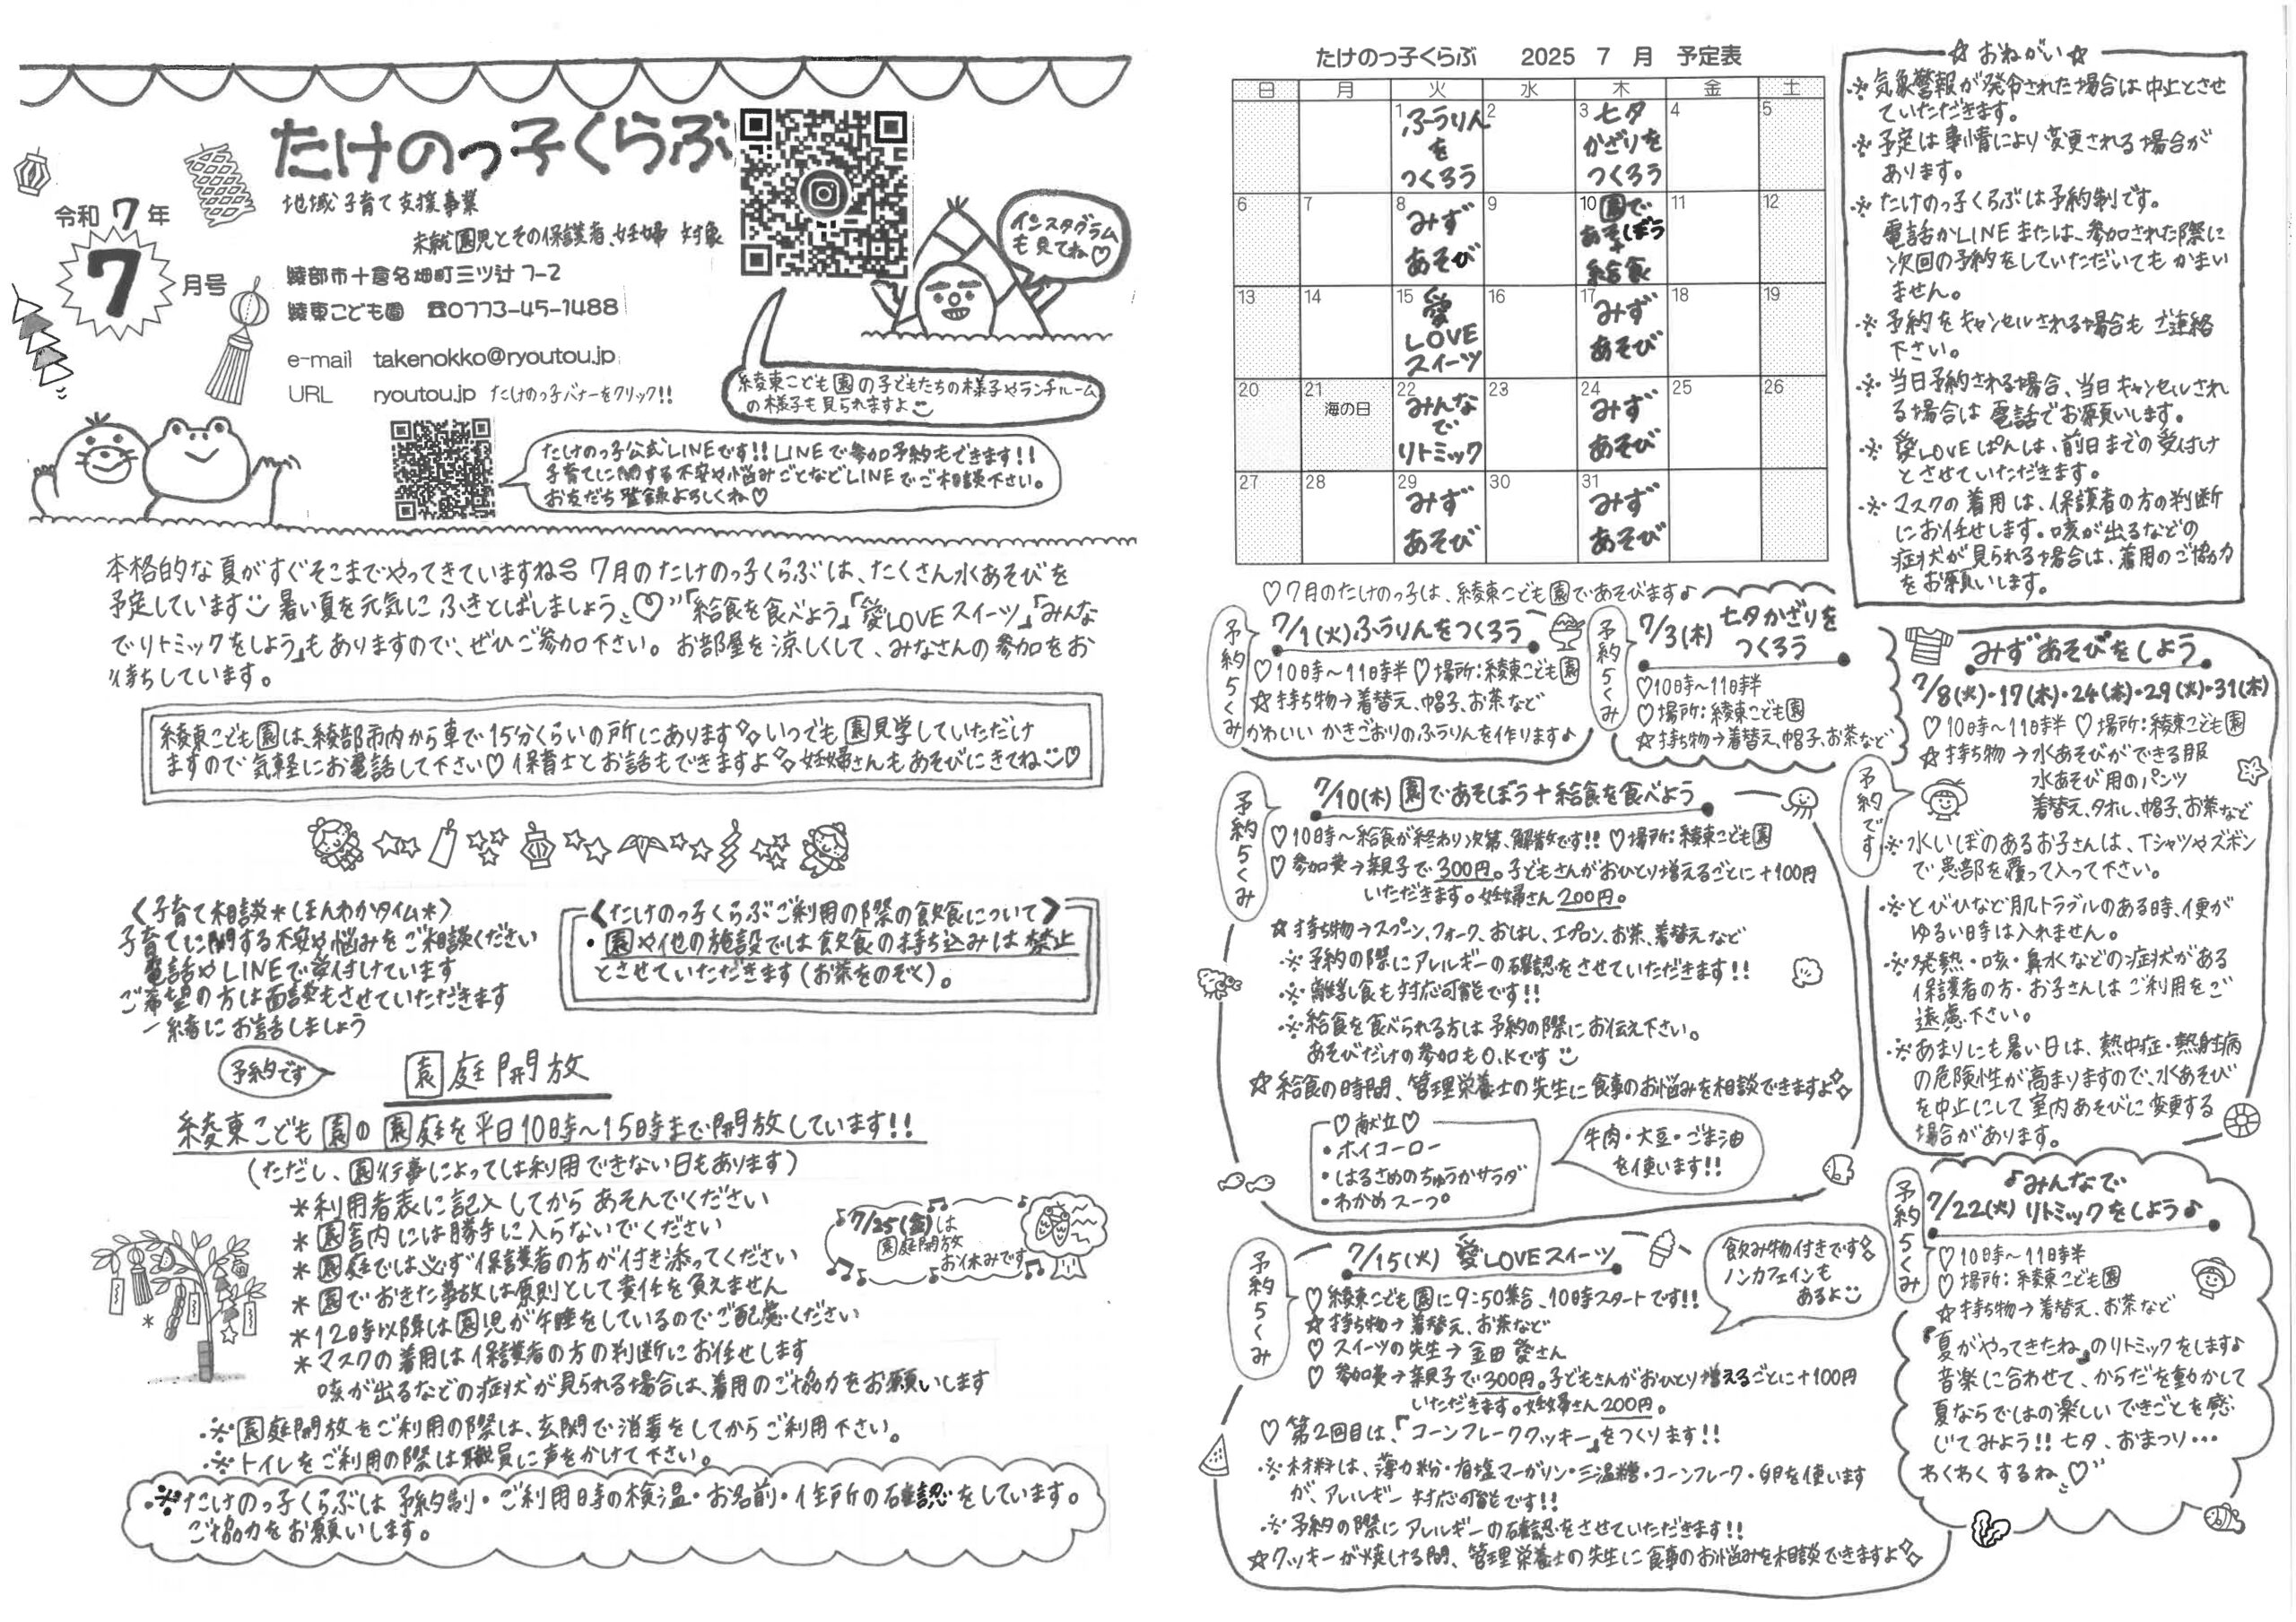 たけのっ子くらぶ
地域子育て支援事業
未就園児とその保護者、妊婦 対象
令和7年
7
月号
綾部市十倉名畑町三ツ辻7-2
綾東こども園 ☎0773-45-1488
e-mail takenokko@ryoutou.jp
URL ryoutou.jp たけのっ子バナーをクリック!!
インスタグラム
も見てね♡
綾東こども園の子どもたちの様子やランチルーム
の様子も見られますよ
たけのっ子公式LINEです!! LINEで参加予約もできます!!
子育てに関する不安や悩みごとなどLINEでご相談下さい。
お友だち登録よろしくね♡
本格的な夏がすぐそこまでやってきていますね 7月のたけのっ子くらぶは、たくさん水あそびを
予定しています 暑い夏を元気にふきとばしましょう♡「給食を食べよう」「愛LOVEスイーツ」「みんな
でリトミックをしよう」もありますので、ぜひご参加下さい。お部屋を涼しくして、みなさんの参加をお
待ちしています。
綾東こども園は、綾部市内から車で15分くらいの所にあります いつでも園見学していただけ
ますので気軽にお電話して下さい♡ 保育士とお話もできますよ 妊婦さんもあそびにきてね♡
〈子育て相談*ほんわかタイム*〉
子育てに関する不安や悩みをご相談ください
電話やLINEで受付けています
ご希望の方は面談もさせていただきます
一緒にお話しましょう
〈たけのっ子くらぶご利用の際の飲食について〉
・園や他の施設では飲食の持ち込みは禁止
とさせていただきます(お茶をのぞく)。
予約です
園庭開放
綾東こども園の園庭を平日10時～15時まで開放しています!!
(ただし、園行事によっては利用できない日もあります)
*利用者表に記入してからあそんでください
*園舎内には勝手に入らないでください
*園庭では必ず保護者の方が付き添ってください
*園でおきた事故は原則として責任を負えません
*12時以降は園児が午睡をしているのでご配慮ください
*マスクの着用は保護者の方の判断にお任せします
咳が出るなどの症状が見られる場合は、着用のご協力をお願いします
♪7/25(金)は
園庭開放
お休みです
※園庭開放をご利用の際は、玄関で消毒をしてからご利用下さい。
※トイレをご利用の際は職員に声をかけて下さい。
※たけのっ子くらぶは予約制・ご利用時の検温・お名前・住所の確認をしています。
ご協力をお願いします。
たけのっ子くらぶ 2025 7 月 予定表
日 月 火 水 木 金 土
1 ふうりんをつくろう 2 3 七夕かざりをつくろう 4 5
6 7 8 みずあそび 9 10 園であそぼう+給食 11 12
13 14 15 愛LOVEスイーツ 16 17 みずあそび 18 19
20 21 海の日 22 みんなでリトミック 23 24 みずあそび 25 26
27 28 29 みずあそび 30 31 みずあそび
☆おねがい☆
※気象警報が発令された場合は中止とさせ
ていただきます。
※予定は事情により変更される場合が
あります。
※たけのっ子くらぶは予約制です。
電話かLINEまたは、参加された際に
次回の予約をしていただいてもかまい
ません。
※予約をキャンセルされる場合もご連絡
下さい。
※当日予約される場合、当日キャンセルされ
る場合は電話でお願いします。
※愛LOVEぱんは、前日までの受付け
とさせていただきます。
※マスクの着用は、保護者の方の判断
にお任せします。咳が出るなどの
症状が見られる場合は、着用のご協力
をお願いします。
♡7月のたけのっ子は、綾東こども園であそびます♪
予約5くみ
7/1(火)ふうりんをつくろう
♡10時～11時半 ♡場所:綾東こども園
☆持ち物→着替え、帽子、お茶など
かわいいかきごおりのふうりんを作ります♪
予約5くみ
7/3(木) 七夕かざりを
つくろう
♡10時～11時半
♡場所:綾東こども園
☆持ち物→着替え、帽子、お茶など
みずあそびをしよう
7/8(火)・17(木)・24(木)・29(火)・31(木)
♡10時～11時半 ♡場所:綾東こども園
☆持ち物→水あそびができる服
水あそび用のパンツ
着替え、タオル、帽子、お茶など
予約です
※水いぼのあるお子さんは、Tシャツやズボン
で患部を覆って入って下さい。
※とびひなど肌トラブルのある時、便が
ゆるい時は入れません。
※発熱・咳・鼻水などの症状がある
保護者の方・お子さんはご利用をご
遠慮下さい。
※あまりにも暑い日は、熱中症・熱射病
の危険性が高まりますので、水あそび
を中止にして室内あそびに変更する
場合があります。
予約5くみ
7/10(木)園であそぼう+給食を食べよう
♡10時～給食が終わり次第、解散です!! ♡場所:綾東こども園
♡参加費→親子で300円。子どもさんがおひとり増えるごとに+100円
いただきます。妊婦さん200円。
☆持ち物→スプーン、フォーク、おはし、エプロン、お茶、着替えなど
※予約の際にアレルギーの確認をさせていただきます!!
※離乳食も対応可能です!!
※給食を食べられる方は予約の際にお伝え下さい。
あそびだけの参加もO.Kです
☆給食の時間、管理栄養士の先生に食事のお悩みを相談できますよ
♡献立♡
・ホイコーロー
・はるさめのちゅうかサラダ
・わかめスープ
牛肉・大豆・ごま油
を使います!!
予約5くみ
7/15(火) 愛LOVEスイーツ
♡綾東こども園に9:50集合、10時スタートです!!
☆持ち物→着替え、お茶など
♡スイーツの先生→金田 愛さん
♡参加費→親子で300円。子どもさんがおひとり増えるごとに+100円
いただきます。妊婦さん200円。
♡第2回目は、『コーンフレーククッキー』をつくります!!
※材料は、薄力粉・有塩マーガリン・三温糖・コーンフレーク・卵を使います
が、アレルギー対応可能です!!
※予約の際にアレルギーの確認をさせていただきます!!
☆クッキーが焼ける間、管理栄養士の先生に食事のお悩みを相談できますよ
飲み物付きです
ノンカフェインも
あるよ
予約5くみ
♪みんなで
7/22(火) リトミックをしよう♪
♡10時～11時半
♡場所:綾東こども園
☆持ち物→着替え、お茶など
『夏がやってきたね』のリトミックをします♪
音楽に合わせて、からだを動かして
夏ならではの楽しいできごとを感
じてみよう!! 七夕、おまつり…
わくわくするね♡